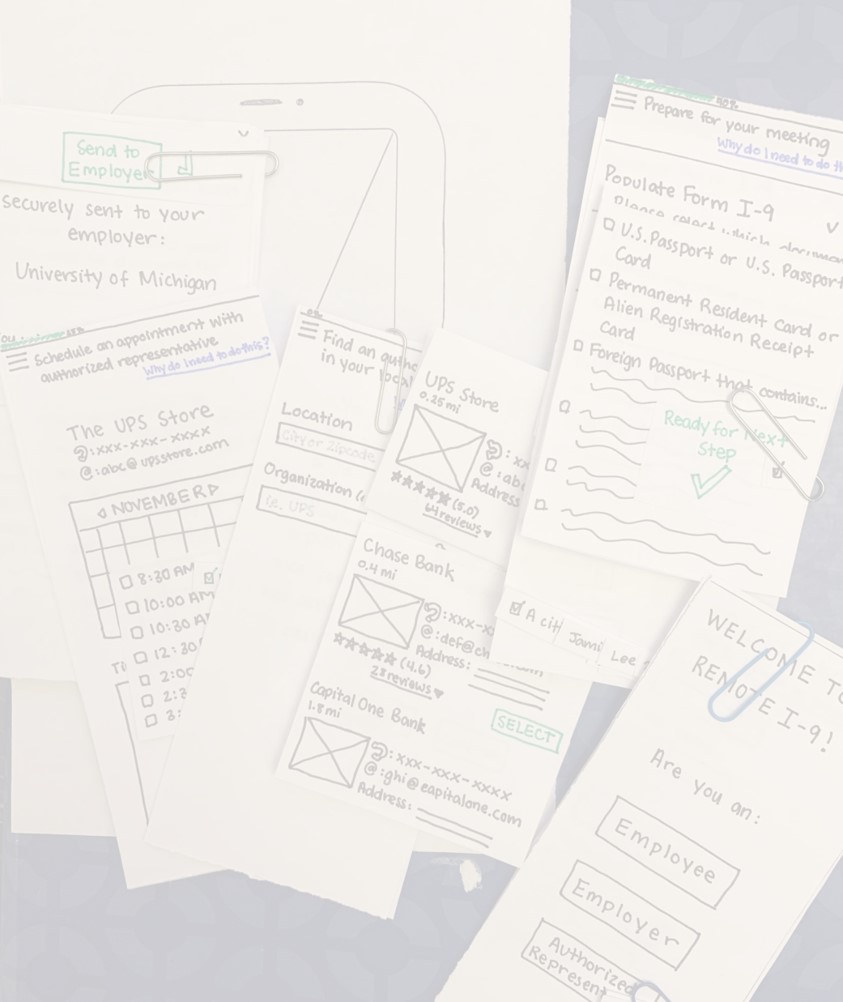 Send to
Employer
securely sent to your
employer:
University of Michigan
Schedule an appointment with
authorized representative
Why do I need to do this?
The UPS Store
:xxx-xxx-xxxx
@:abc@upsstore.com
NOVEMBER
8:30 AM
10:00 AM
10:30 A
12:30
2:00
2:3
3:
Find an autho
in your local
Location
City or Zipcode
Organization (
i.e. UPS
UPS Store
0.25 mi
: xx
@:ab
Address
(5.0)
64 reviews
Chase Bank
0.4 mi
:xxx-x
@:def@ch
Address:
(4.6)
23 reviews
Capital One Bank
1.8 mi
SELECT
:xxx-xxx-xxxx
@:ghi@capitalone.com
Address:
40%
Prepare for your meeting
Why do I need to do th
Populate Form I-9
Please select which
U.S. Passport or U.S. Passport
Card
Permanent Resident Card or
Alien Registration Receipt
Card
Foreign Passport that contains...
Ready for Next
Step
A cit
Jami
Lee
WELCOME TO
REMOTE I-9!
Are you an:
Employee
Employer
Authorized
Represent